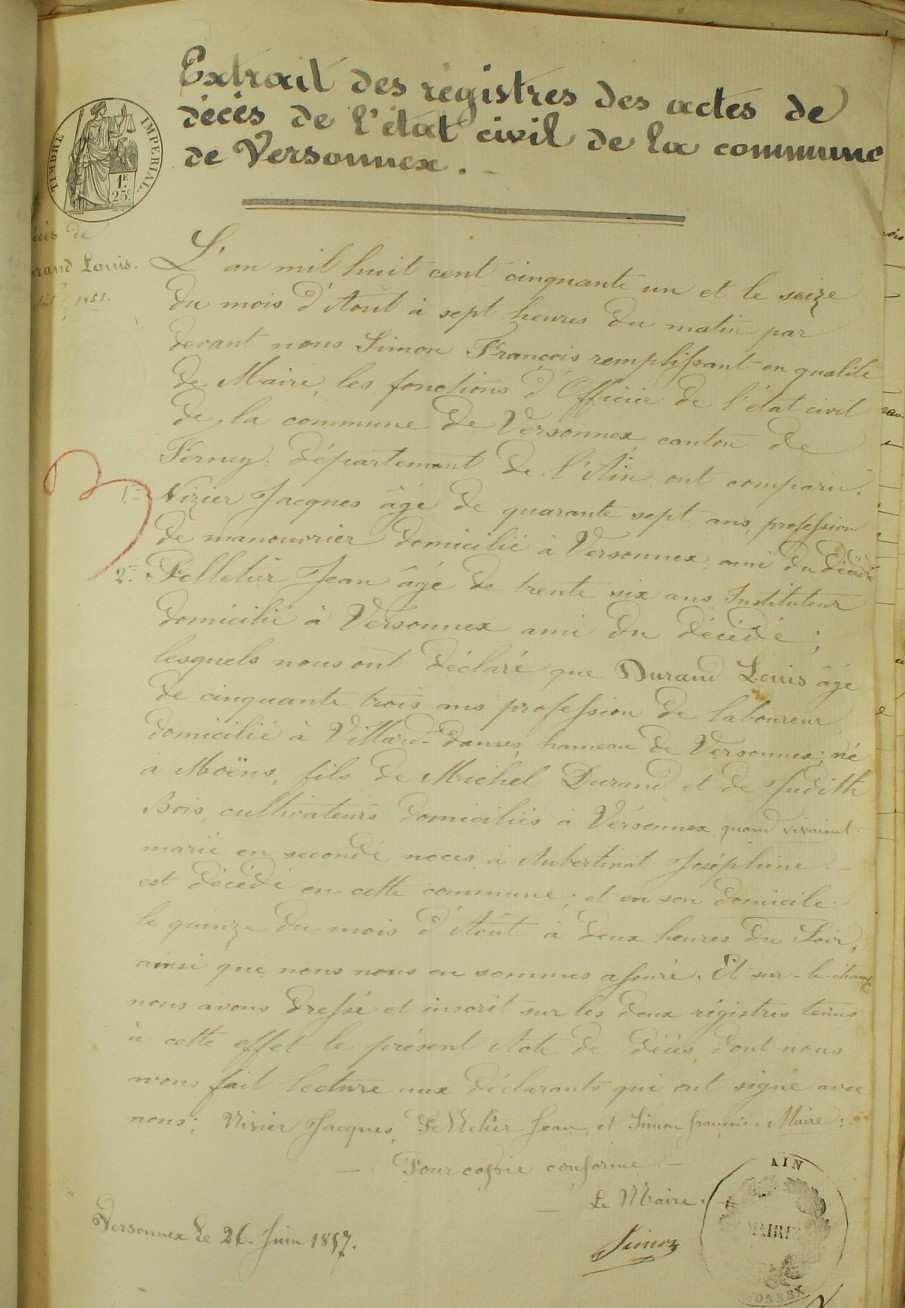 Extrait des régistres des actes de
décès de l'état civil de la commune
de Versonnex.
TIMBRE IMPERIAL
1F
25c
de
Louis.
1851.
L'an mil huit cent cinquante un et le seize
du mois d'Août à sept heures du matin par
devant nous Simon François remplissant en qualité
de Maire, les fonctions d'Officier de l'état civil
de la commune de Versonnex canton de
Ferney, département de l'Ain ont comparu:
1° Vizier Jacques âgé de quarante sept ans, profession
de manouvrier domicilié à Versonnex, ami du décédé
2° Pelletier Jean âgé de trente six ans Instituteur
domicilié à Versonnex ami du décédé;
lesquels nous ont déclaré que Durand Louis âgé
de cinquante trois ans profession de laboureur
domicilié à Villard-dames hameau de Versonnex; né
à Moëns, fils de Michel Durand et de Judith
Bois, cultivateurs domiciliés à Versonnex quand vivaient
marié en seconde noces à Aubertinat Joséphine
est décédé en cette commune; et en son domicile
le quinze du mois d'Août à deux heures du Soir,
ainsi que nous nous en sommes assuré. Et sur-le-champ
nous avons dressé et inscrit sur les deux régistres tenus
à cette effet le présent Acte de décès, dont nous
avons fait lecture aux déclarants qui ont signé avec
nous; Vizier Jacques, Pelletier Jean, et Simon françois. Maire.
Pour copie conforme
Le Maire.
Versonnex le 26 Juin 1857.
Simon
AIN
MAIRIE